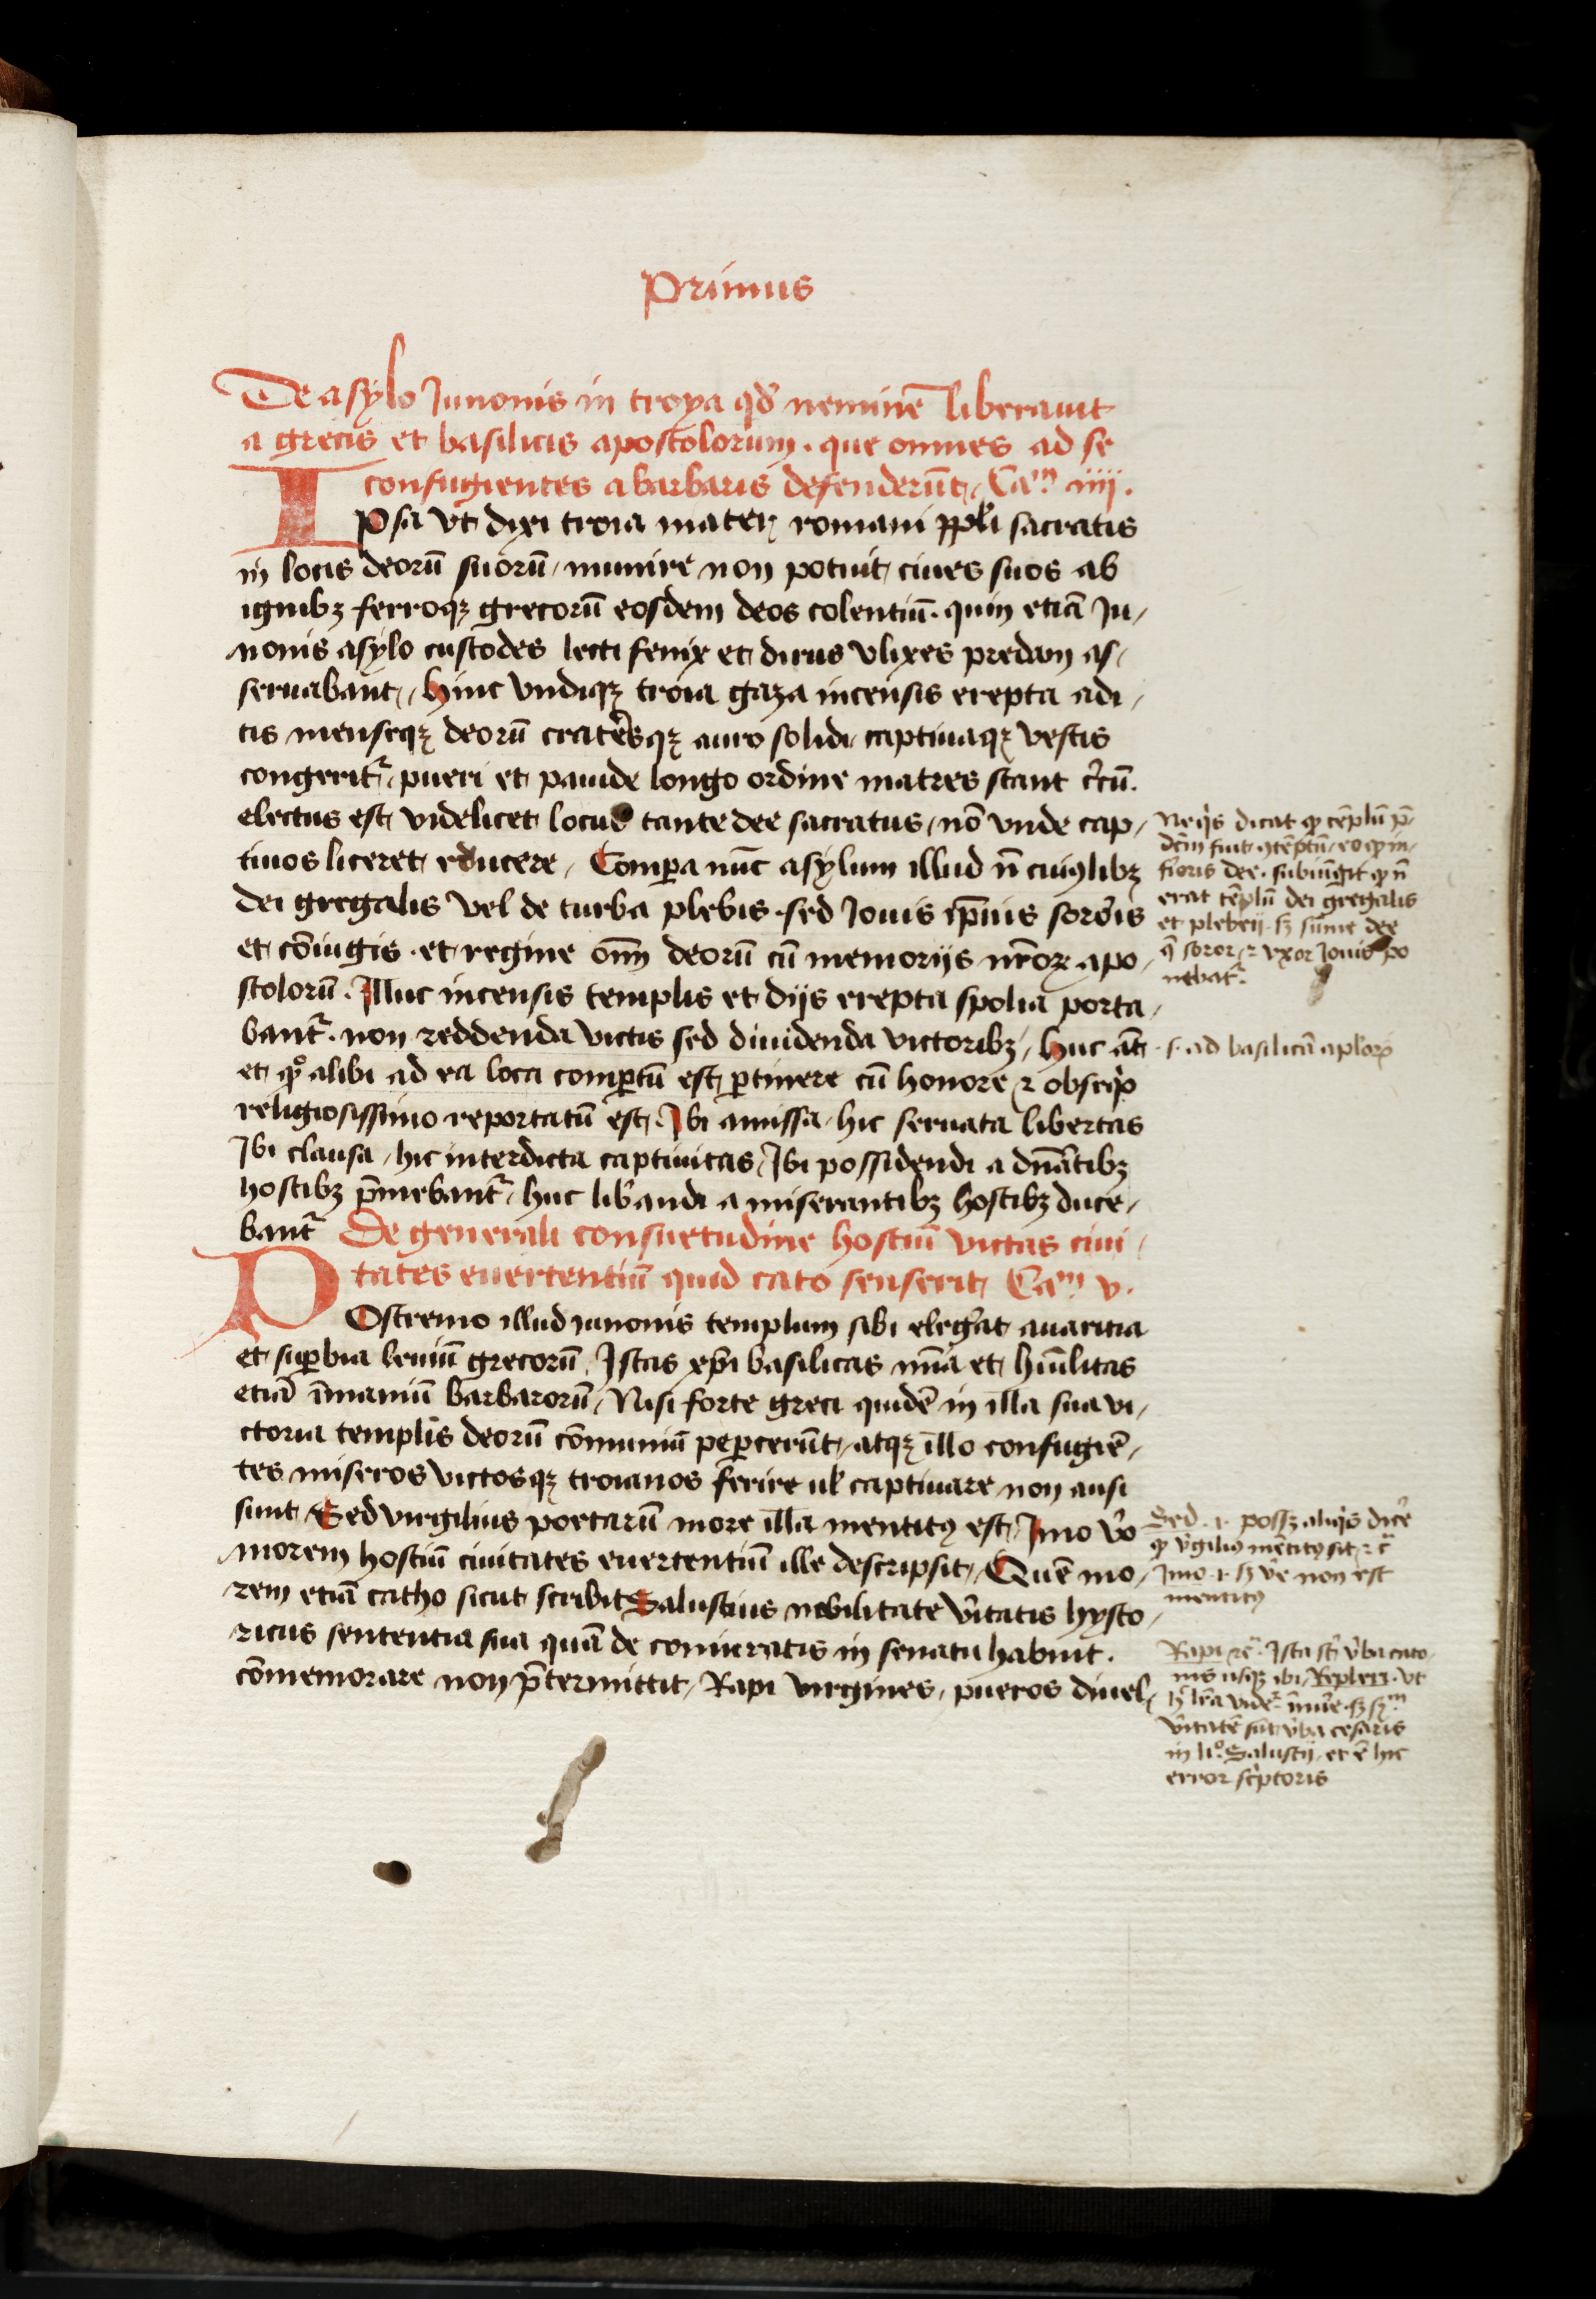 Primus
De asylo Junonis in troya qd̕ neminē liberauit
a grecis et basilicis apostolorum. que omnes ad se
confugientes a barbaris defenderūt, Cam̄ iiij.
IPsa vt dixi troia mater romani ppl̕i sacratis
in locis deorū suorū, munire non potuit ciues suos ab
ignibꝫ ferroqꝫ grecorū eosdem deos colentiū. quin etiā Ju,
nonis asylo custodes lecti fenix et dirus vlixes predam as,
seruabant, hinc vndiqꝫ troia gaza incensis erepta adi,
tis menseqꝫ deorū crateresqꝫ auro solidi, captiuaqꝫ vestis
congerit᷑, pueri et pauide longo ordine matres stant c̕rcū.
electus est videlicet locus tante dee sacratus, nō vnde cap,
tiuos liceret educere, Compa̱ nūc asylum illud n̄ cuiꝰlibꝫ
dei gregalis vel de turba plebis. sed Jouis ip̄ius soror̕is
et cōiugis. et regine om̄ deorū cū memorijs nr̄oꝝ apo,
stolorū. Illuc incensis templis et dijs erepta spolia porta,
bant᷑. non reddenda victis sed diuidenda victoribꝫ, huc āt
et qͦ alibi ad ea loca compe̱rtū est, p̱tinere cū honore ⁊ obseqͥo
religiosissimo reportatū est. Ibi amissa, hic seruata libertas
Ibi clausa, hic interdicta captiuitas, Ibi possidendi a dn̄ātibꝫ
hostibꝫ p̄mebant᷑, huc lib̕andi a miserantibꝫ hostibꝫ duce,
bant᷑ De generali consuetudine hostiū victas ciui,
tates euertentiū quid cato senserit, Cam̄ v.
POstremo illud iunonis templum sibi eleg̕at auaritia
et sup̱bia leuiū grecorū, Istas xp̄i basilicas mīa et hūilitas
etiā īmaniū barbarorū, Nisi forte greci quidē in illa sua vi,
ctoria templis deorū cōmuniū pepe̱rcerūt, atqꝫ illo confugiē,
tes miseros victosqꝫ troianos ferire ul̕ captiuare non ausi
sunt, Sed virgilius poetarū more illa mentitꝰ est, Imo v̕o
morem hostiū ciuitates euertentiū ille descripsit, Quē mo,
rem etiā catho sicut scribit Salustius nobilitate v̕itatis hysto,
ricus sententia sua quā de coniuratis in senatu habuit.
cōmemorare non p̄termittit, Rapi virgines, pueros diuel,
Neqͥs dicat qꝫ tēplū p̄
dc̄m fuit 9tēptū, eo qꝫ in,
f̕ioris dee. subiūgit qꝫ n̄
erat tēplū dei gregalis
et plebeij. sꝫ sūme dee
q̄ soror ⁊ vxor Jouis po
nebat᷑.
.s. ad basilicā aplorꝫ
Sed .i. possꝫ aliqͥs dic̕e
qꝫ v̕giliꝰ mētitꝰ sit, ⁊c̄
Imo .i. sꝫ v̕e non est
mentitꝰ
Rapi ⁊c̄. Ista sūt v̕ba cato,
nis usqꝫ ibi, Repleri. vt
v̕itatē sūt v̕ba cesaris
in liͦ. Salustij, et ē hic
error sc̕ptoris